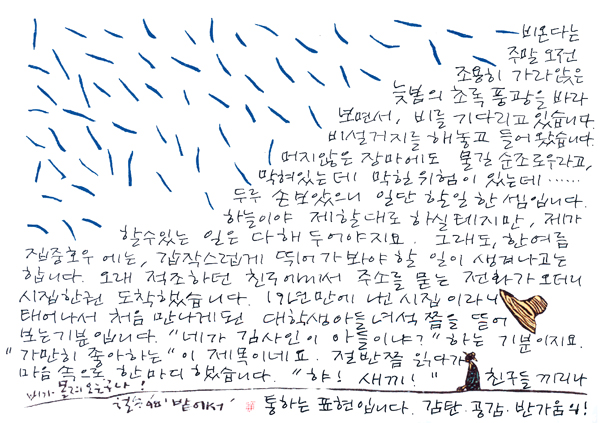 비온다는
주말 오전
조용히 가라앉은
늦봄의 초록 풍광을 바라
보면서, 비를 기다리고 있습니다.
비설거지를 해놓고 들어왔습니다.
머지않은 장마에도 물길 순조로우라고,
막혀있는데 막힐위험이 있는데 ······
두루 손보았으니 일단 할일 한 셈입니다.
하늘이야 제할대로 하실테지만, 제가
할수있는 일은 다해 두어야지요. 그래도, 한여름
집중호우에는, 갑작스럽게 뛰어가봐야 할 일이 생겨나고는
합니다. 오래 적조하던 친구에게서 주소를 묻는 전화가 오더니
시집한권 도착했습니다. 19년만에 낸 시집이라니
태어나서 처음 만나게된 대학생아들녀석쯤을 뜰어
보는기분입니다. "네가 김사인이 아들이냐?" 하는 기분이지요.
"가만히 좋아하는"이 제목이네요. 절반쯤 읽다가
마음 속으로 한마디 했습니다. "햐! 새끼!" 친구들 끼리나
비가 몰려오는구나!
통하는 표현입니다. 감탄·공감·반가움의!